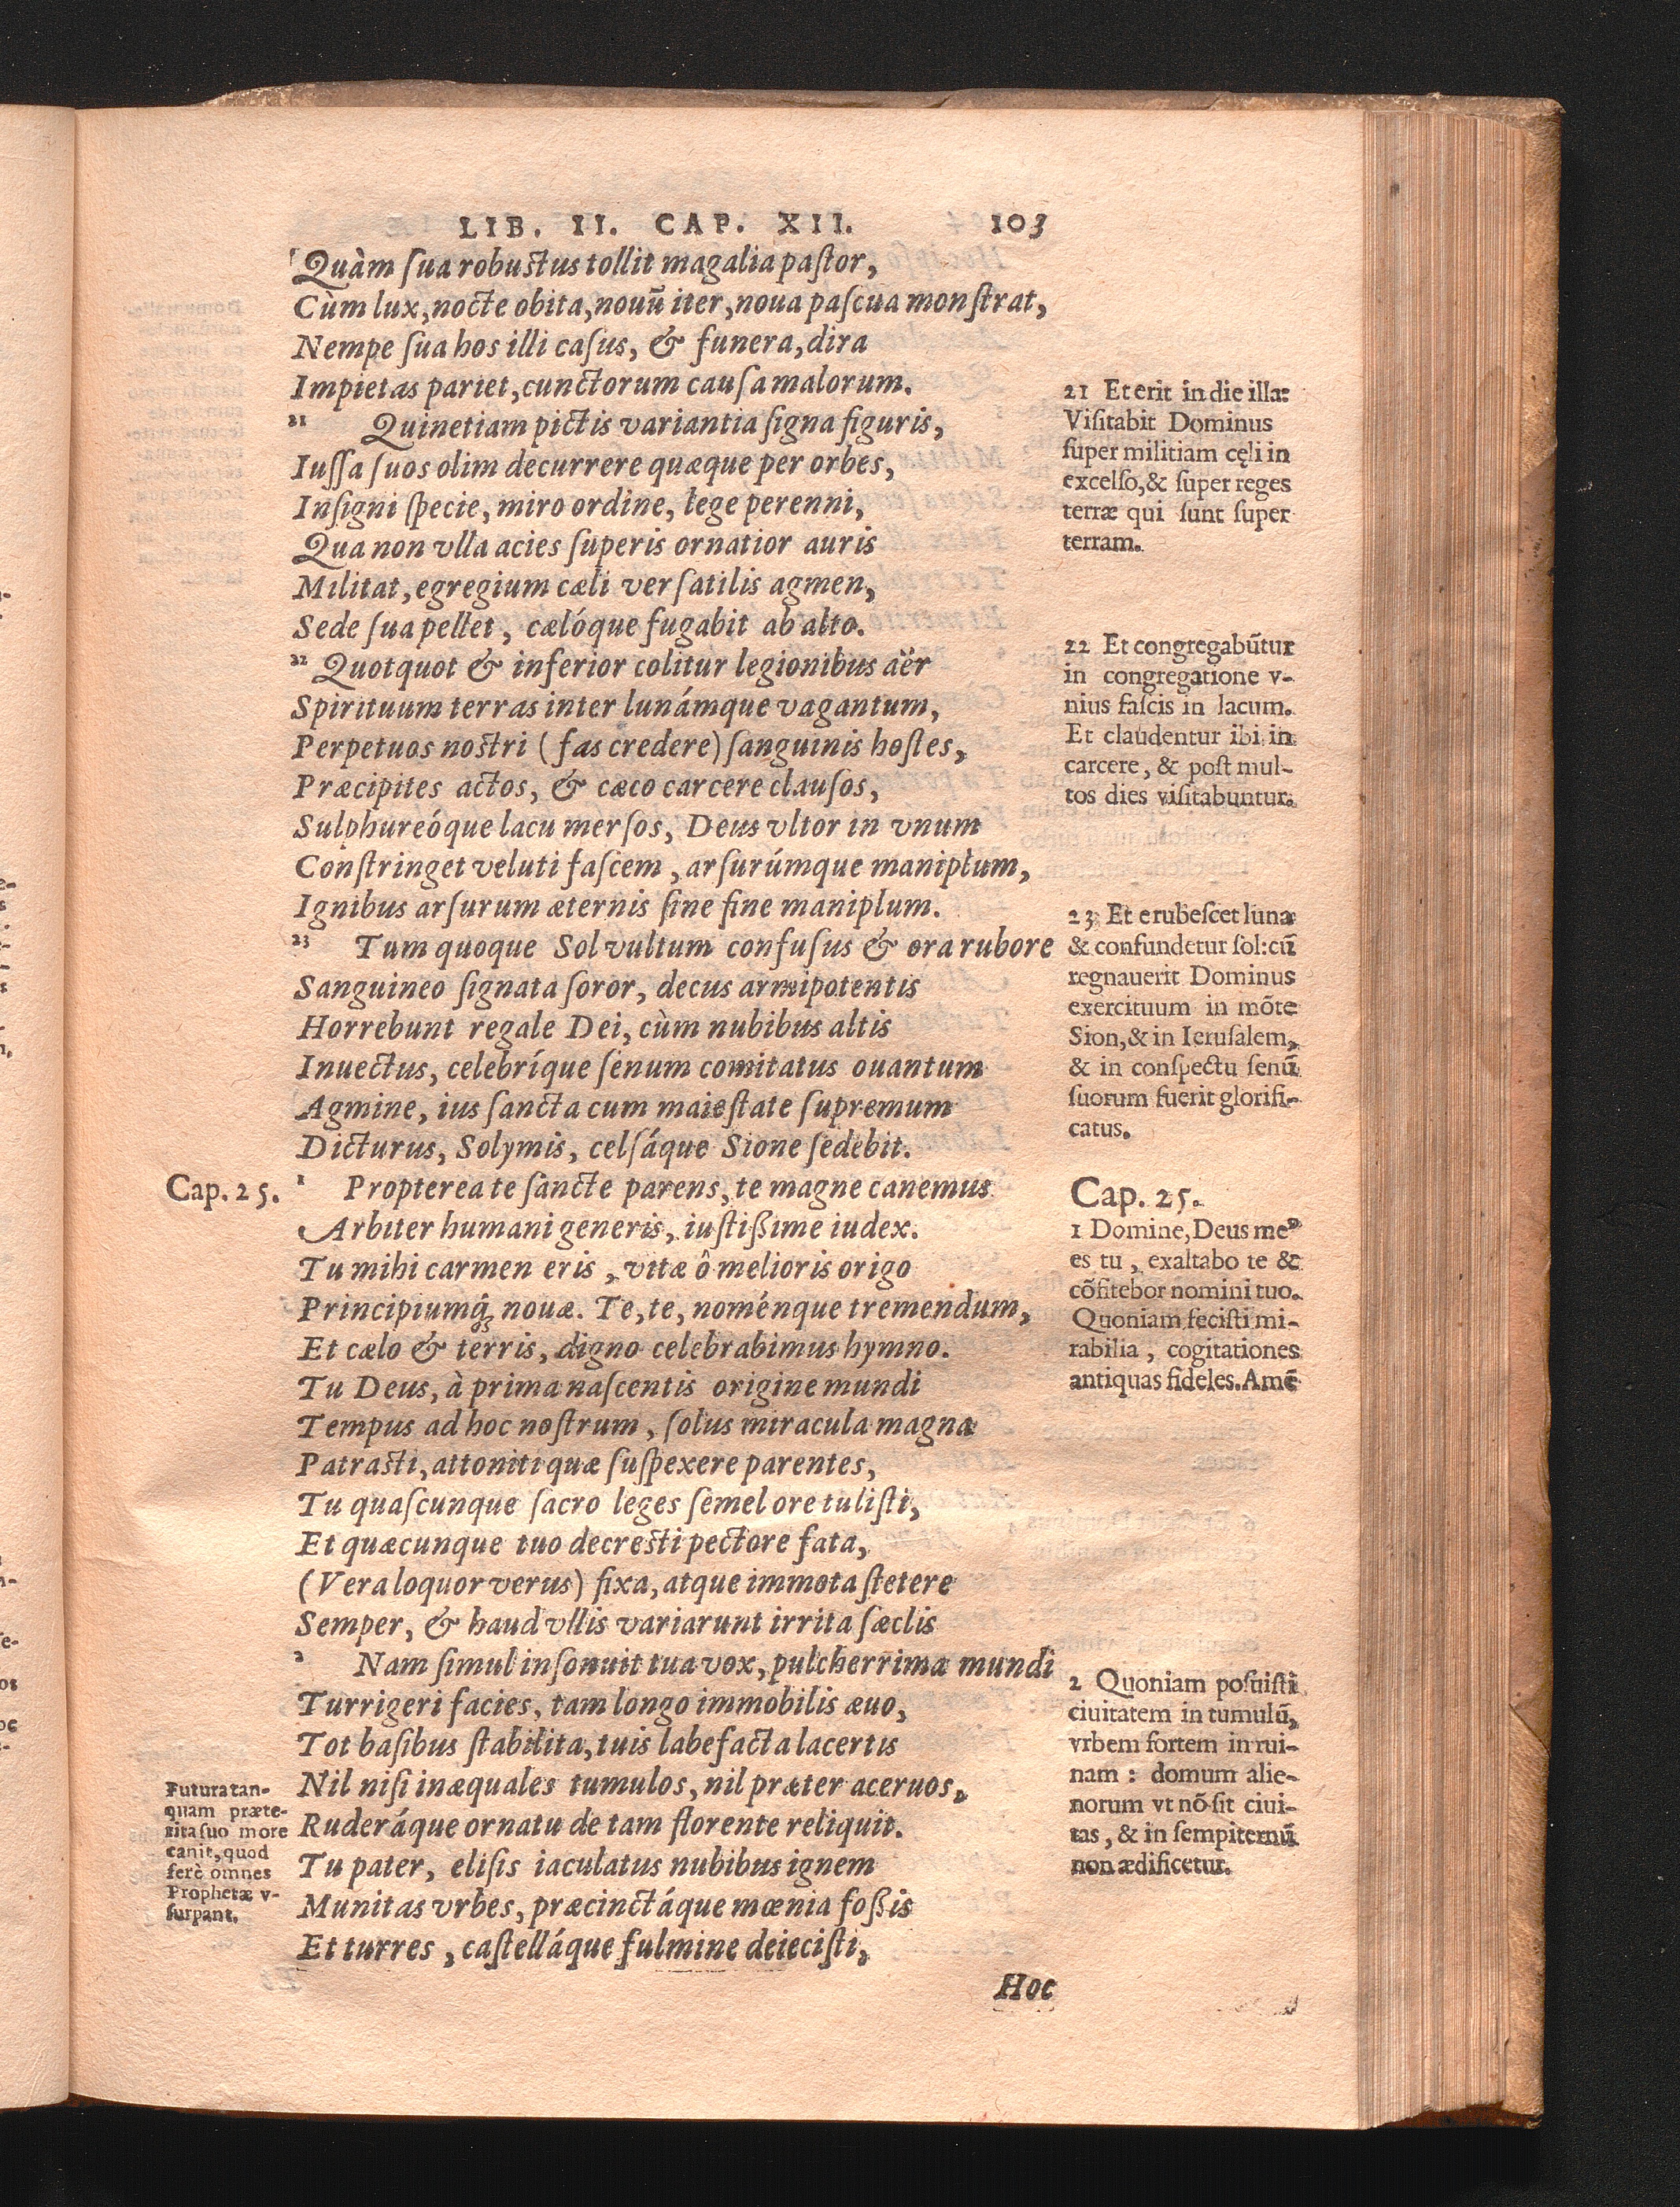 LIB. II. CAP. XII. 103
Quàm ſua robuſtus tollit magalia paſtor,
Cùm lux, nocte obita, nouũ iter, noua paſcua monſtrat,
Nempe ſua hos illi caſus, & funera, dira
Impietas pariet, cunctorum cauſa malorum.
21 Quinetiam pictis variantia ſigna figuris,
Iuſſa ſuos olim decurrere quæque per orbes,
Inſigni ſpecie, miro ordine, lege perenni,
Qua non vlla acies ſuperis ornatior auris
Militat, egregium cæli verſatilis agmen,
Sede ſua pellet, cælóque fugabit ab alto.
22 Quotquot & inferior colitur legionibus aër
Spirituum terras inter lunámque vagantum,
Perpetuos noſtri (fas credere) ſanguinis hoſtes,
Præcipites actos, & cæco carcere clauſos,
Sulphureóque lacu merſos, Deus vltor in vnum
Conſtringet veluti faſcem, arſurúmque maniplum,
Ignibus arſurum æternis ſine fine maniplum.
23 Tum quoque Sol vultum confuſus & ora rubore
Sanguineo ſignata ſoror, decus armipotentis
Horrebunt regale Dei, cùm nubibus altis
Inuectus, celebríque ſenum comitatus ouantum
Agmine, ius ſancta cum maieſtate ſupremum
Dicturus, Solymis, celſáque Sione ſedebit.
Cap. 25.
1 Propterea te ſancte parens, te magne canemus
Arbiter humani generis, iuſtißime iudex.
Tu mihi carmen eris, vitæ ô melioris origo
Principiumq̃ nouæ. Te, te, noménque tremendum,
Et cælo & terris, digno celebrabimus hymno.
Tu Deus, à prima naſcentis origine mundi
Tempus ad hoc noſtrum, ſolus miracula magna
Patraſti, attoniti quæ ſuſpexere parentes,
Tu quaſcunque ſacro leges ſemel ore tuliſti,
Et quæcunque tuo decreſti pectore fata,
(Vera loquor verus) fixa, atque immota ſtetere
Semper, & haud vllis variarunt irrita ſæclis
2 Nam ſimul inſonuit tua vox, pulcherrima mundi
Turrigeri facies, tam longo immobilis æuo,
Tot baſibus ſtabilita, tuis labefacta lacertis
Nil niſi inæquales tumulos, nil præter aceruos,
Ruderáque ornatu de tam florente reliquit.
Tu pater, eliſis iaculatus nubibus ignem
Munitas vrbes, præcinctáque mœnia foßis
Et turres, caſtelláque fulmine deieciſti,
Hoc
Futura tan-
quam præte-
rita ſuo more
canit, quod
ferè omnes
Prophetæ v-
ſurpant.
21 Et erit in die illa:
Viſitabit Dominus
ſuper militiam cęli in
excelſo, & ſuper reges
terræ qui ſunt ſuper
terram.
22 Et congregabũtur
in congregatione v-
nius faſcis in lacum.
Et claudentur ibi in
carcere, & poſt mul-
tos dies viſitabuntur.
23 Et erubeſcet luna
& confundetur ſol: cũ
regnauerit Dominus
exercituum in mõte
Sion, & in Ieruſalem,
& in conſpectu ſenũ
ſuorum fuerit glorifi-
catus.
Cap. 25.
1 Domine, Deus meꝰ
es tu, exaltabo te &
cõfitebor nomini tuo.
Quoniam feciſti mi-
rabilia, cogitationes
antiquas fideles. Amẽ
2 Quoniam poſuiſti
ciuitatem in tumulũ,
vrbem fortem in rui-
nam : domum alie-
norum vt nõ ſit ciui-
tas, & in ſempiternũ
non ædificetur.